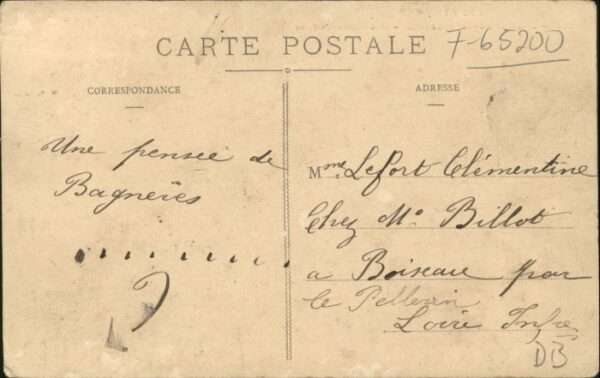 CARTE POSTALE
F-65200
CORRESPONDANCE
ADRESSE
Une pensée de
Bagnères
Mme. Lefort Clémentine
Chez Mr. Billot
a Boiseau par
le Pellerin
Loire Infre
DB